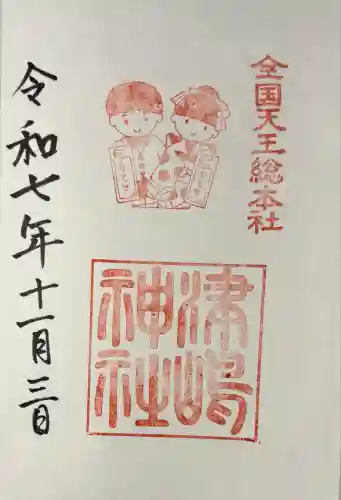 全国天王総本社
津嶋
神社
令和七年十一月三日